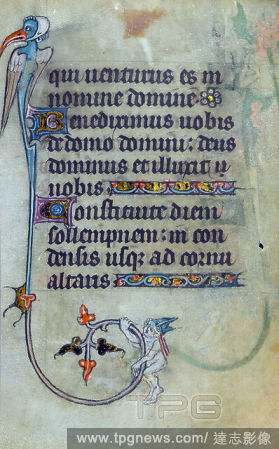 qui uenturus es in
nomine domine
Benediximus uobis
de domo domini: deus
dominus et illuxit ĩ
uobis
Constituite diem
sollempnem: in con
densis usq; ad cornu
altaris
TPG
www.tpgnews.com/ 達志影像